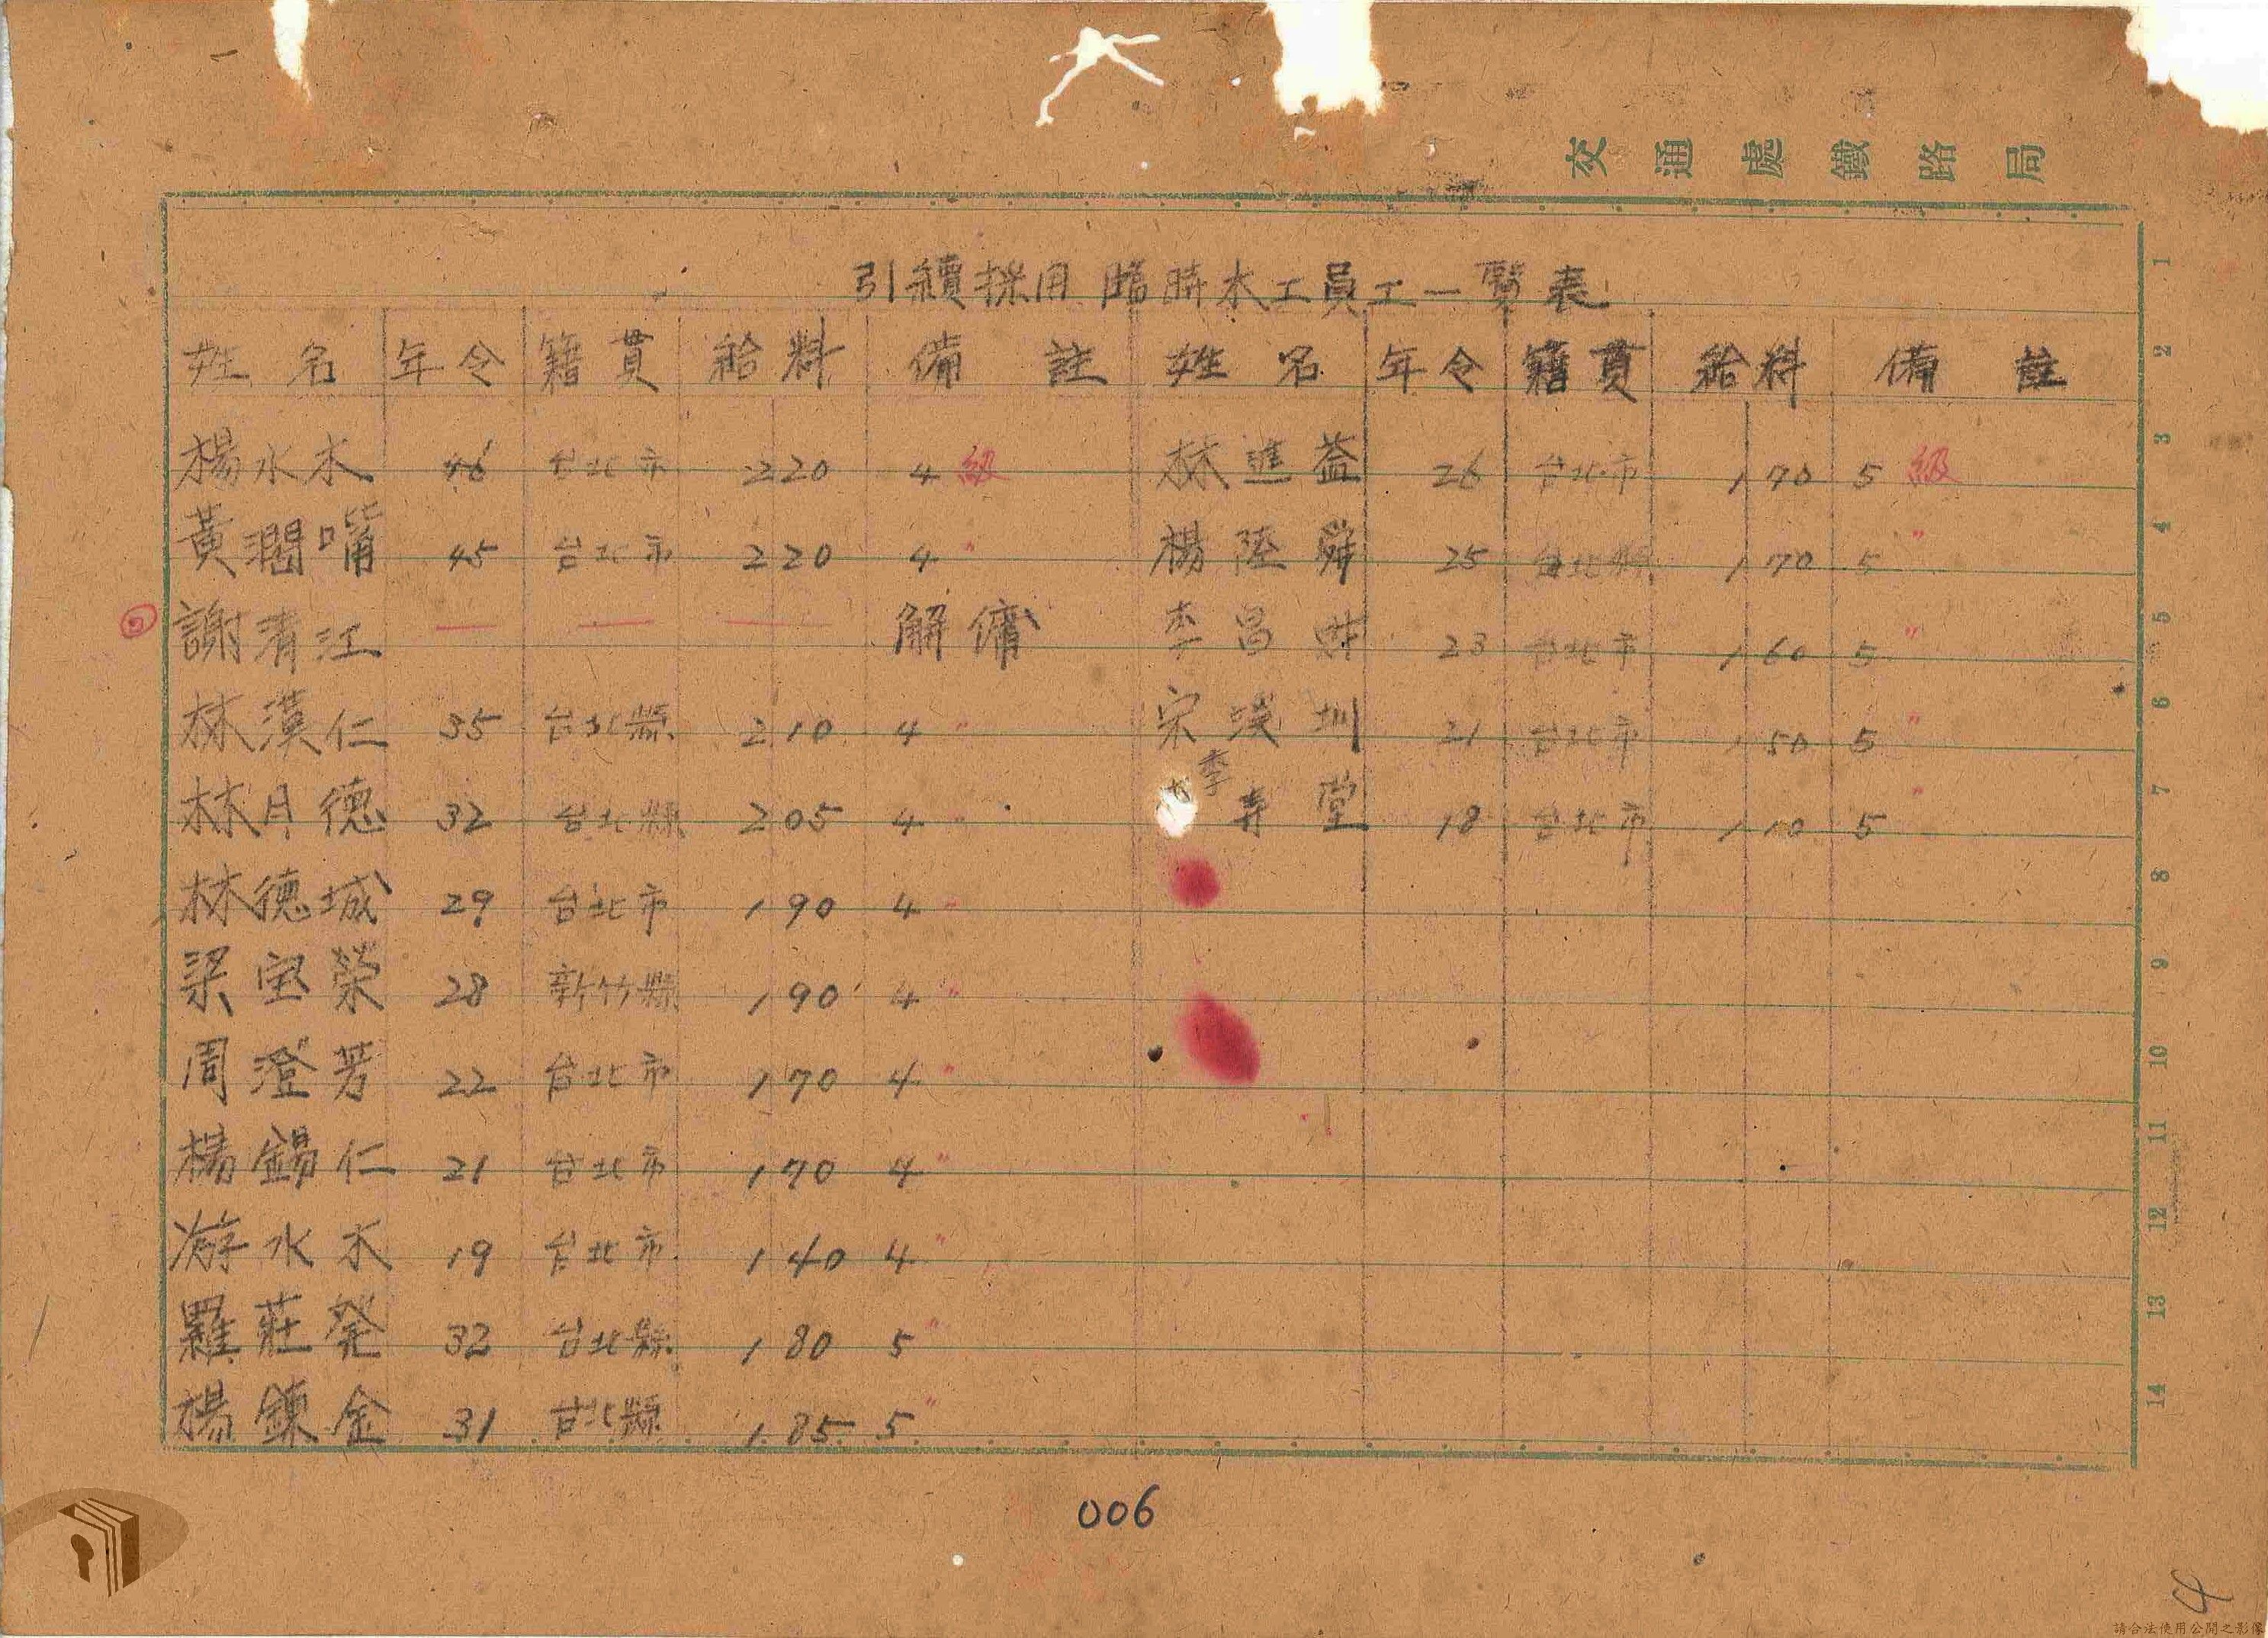 交通處鐵路局
引續採用臨時木工員工一覽表
姓名 年令 籍貫 給料 備註 姓名 年令 籍貫 給料 備註
楊水木 46 台北市 220 4級 林進益 26 台北市 170 5級
黃潤嘴 45 台北市 220 4〃 楊陸舜 25 台北縣 170 5〃
謝清江 — — — 解傭 李昌財 23 台北市 160 5〃
林漢仁 35 台北縣 210 4〃 宋淺圳 21 台北市 150 5〃
林月德 32 台北縣 205 4〃 李寿堂 18 台北市 110 5〃
林德城 29 台北市 190 4〃
梁宝榮 28 新竹縣 190 4〃
周澄芳 22 台北市 170 4〃
楊錫仁 21 台北市 170 4〃
游水木 19 台北市 140 4〃
羅莊発 32 台北縣 180 5〃
楊鍊金 31 台北縣 185 5〃
1
2
3
4
5
6
7
8
9
10
11
12
13
14
006
4
請合法使用公開之影像